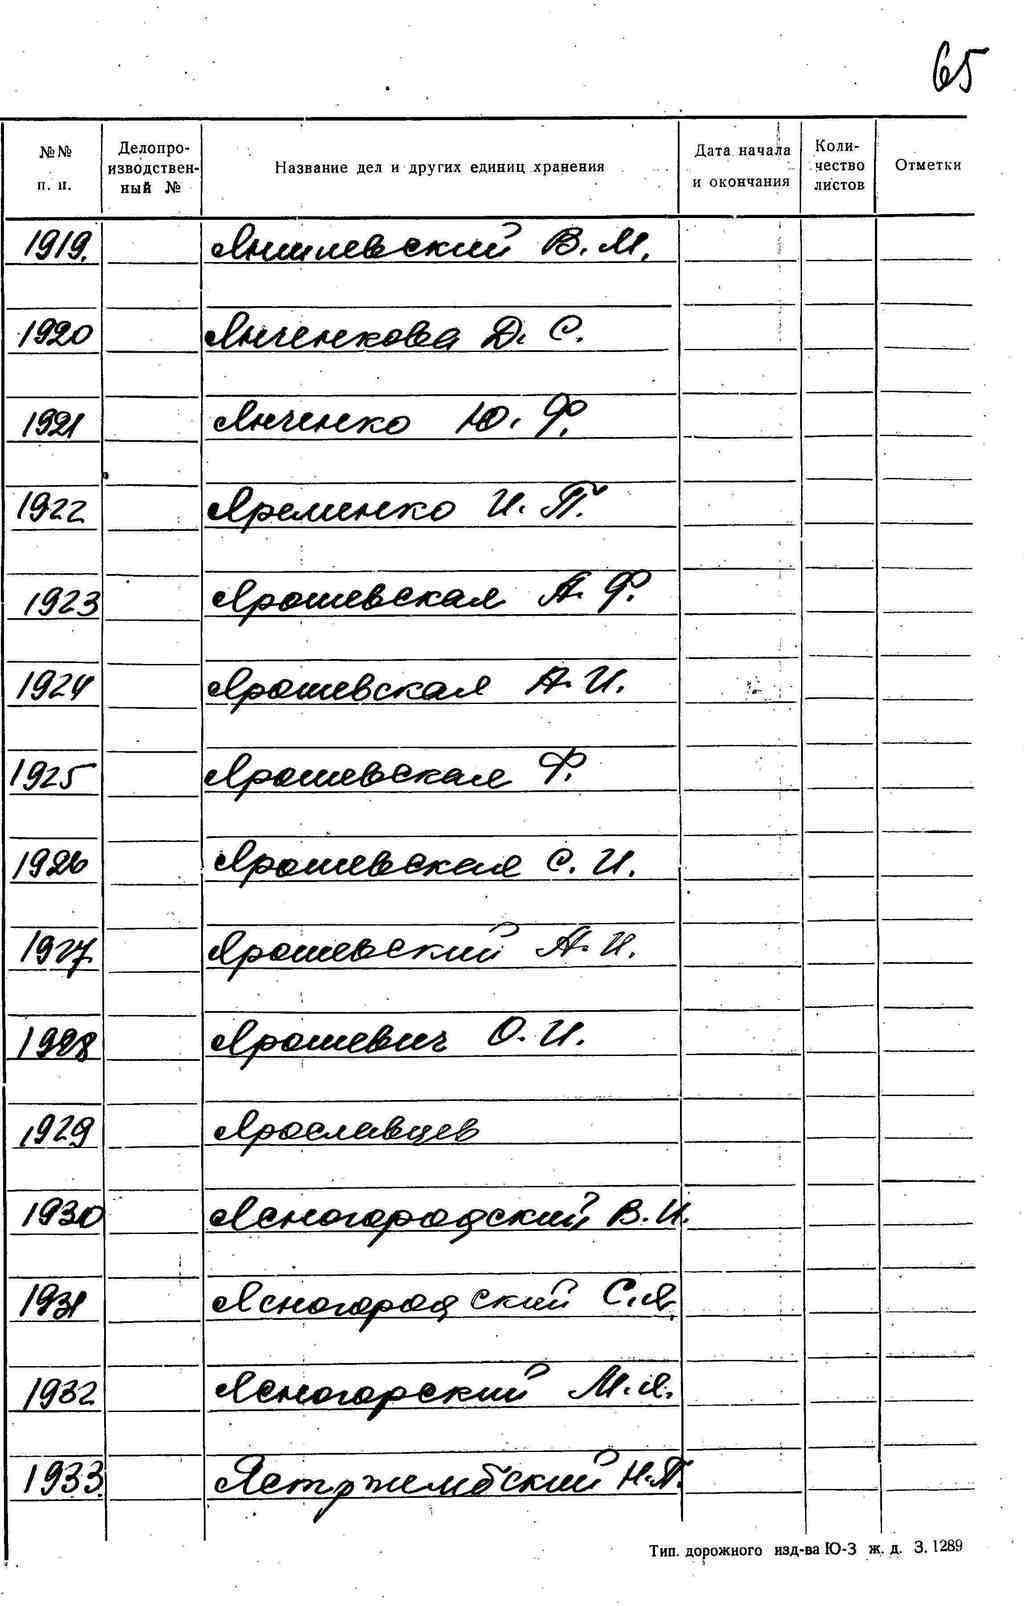 65
№№ п. п. Делопроизводственный № Название дел и других единиц хранения Дата начала и окончания Количество листов Отметки
1919. Янишевский В. М.
1920 Янченкова Д. С.
1921 Янченко Ю. Ф.
1922 Яременко И. П.
1923 Ярошевская А. Ф.
1924 Ярошевская А. И.
1925 Ярошевская Ф.
1926 Ярошевская С. И.
1927 Ярошевский А. И.
1928 Ярошевич О. И.
1929 Ярославцев
1930 Ясногородский В. И.
1931 Ясногородский С. Я.
1932 Ясногорский М. Я.
1933. Ястржембский Н. П.
Тип. дорожного изд-ва Ю-З ж. д. З. 1289